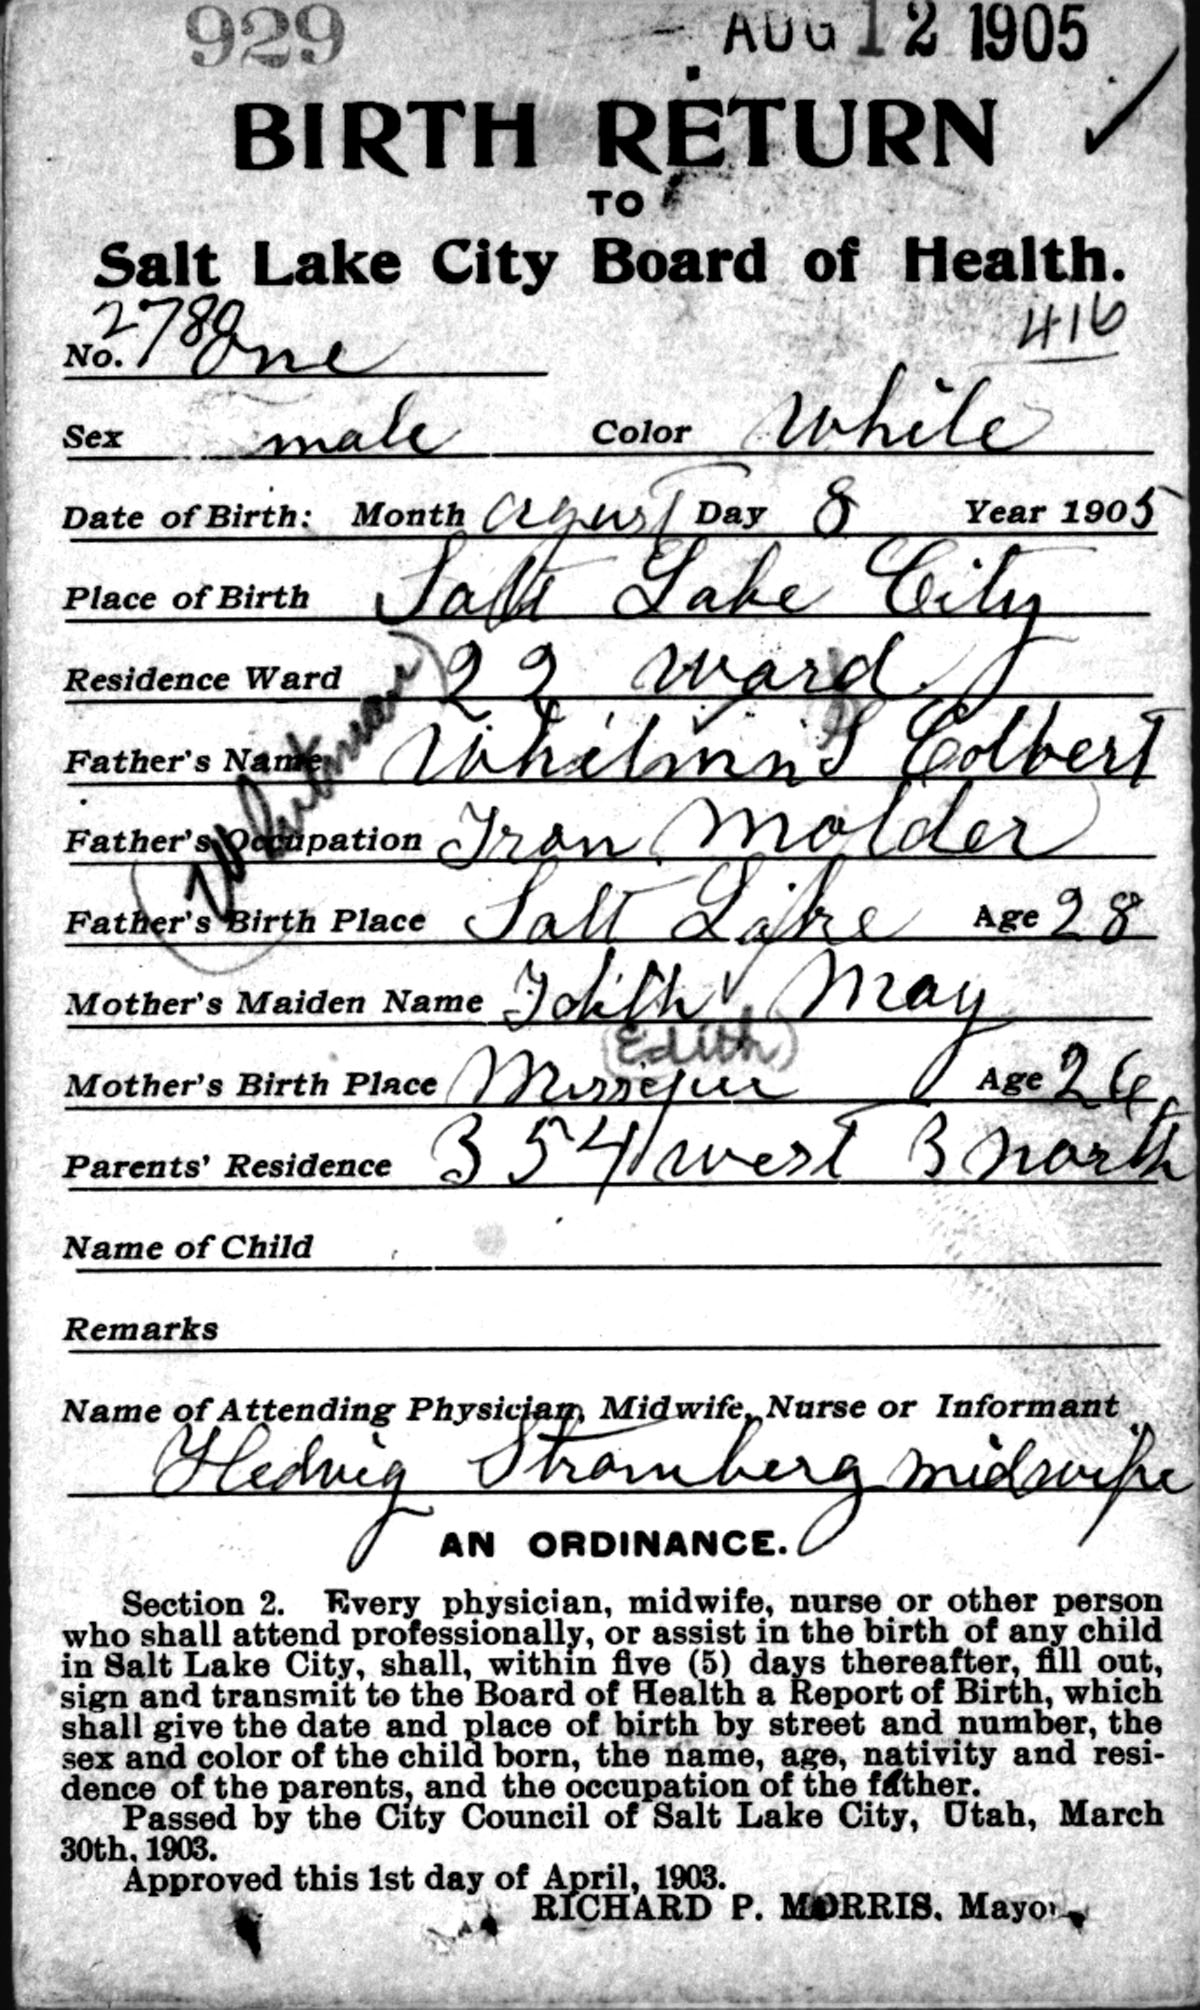 929 AUG 12 1905
BIRTH RETURN
TO
Salt Lake City Board of Health.
No. 278 One 416
Sex male Color White
Date of Birth: Month agust Day 8 Year 1905
Place of Birth Salt Lake City
Residence Ward 22 ward
(Whitman)
Father's Name S Colbert
Father's Occupation Iron Molder
Father's Birth Place Salt Lake Age 28
Mother's Maiden Name Idith May
(Edith)
Mother's Birth Place Age 26
Parents' Residence 354 west 3 north
Name of Child
Remarks
Name of Attending Physician, Midwife, Nurse or Informant
Hedvig Stromberg midwife
AN ORDINANCE.
Section 2. Every physician, midwife, nurse or other person
who shall attend professionally, or assist in the birth of any child
in Salt Lake City, shall, within five (5) days thereafter, fill out,
sign and transmit to the Board of Health a Report of Birth, which
shall give the date and place of birth by street and number, the
sex and color of the child born, the name, age, nativity and resi-
dence of the parents, and the occupation of the father.
Passed by the City Council of Salt Lake City, Utah, March
30th, 1903.
Approved this 1st day of April, 1903.
RICHARD P. MORRIS, Mayor